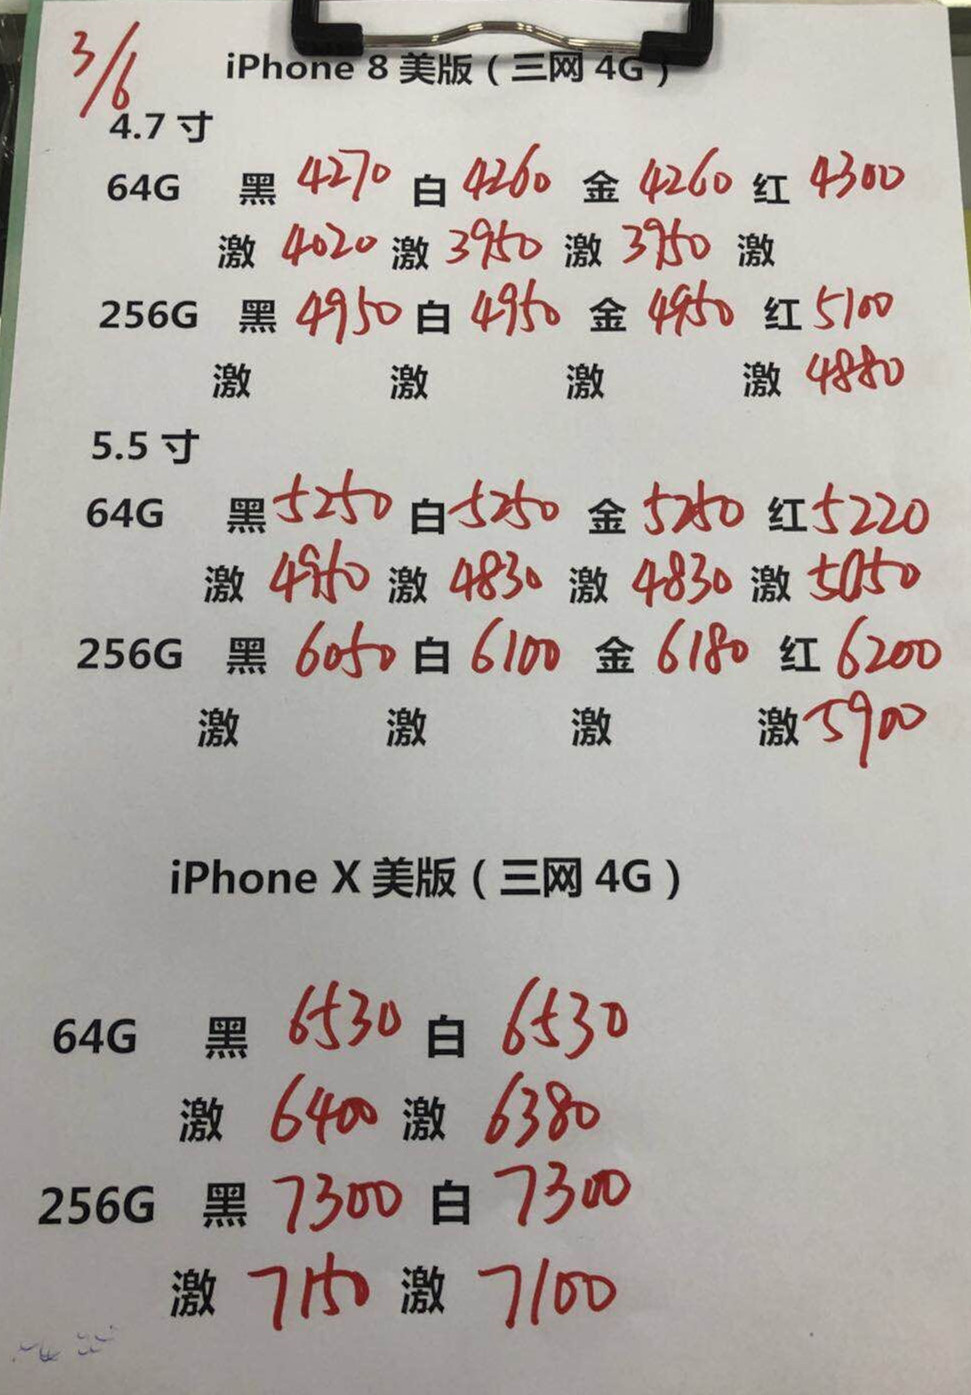 3/6
iPhone 8 美版（三网 4G）
4.7 寸
64G 黑 4270 白 4260 金 4260 红 4300
激 4020 激 3950 激 3950 激
256G 黑 4950 白 4950 金 4950 红 5100
激 激 激 激 4880
5.5 寸
64G 黑 5250 白 5250 金 5250 红 5220
激 4950 激 4830 激 4830 激 5050
256G 黑 6050 白 6100 金 6180 红 6200
激 激 激 激 5900
iPhone X 美版（三网 4G）
64G 黑 6530 白 6530
激 6400 激 6380
256G 黑 7300 白 7300
激 7150 激 7100